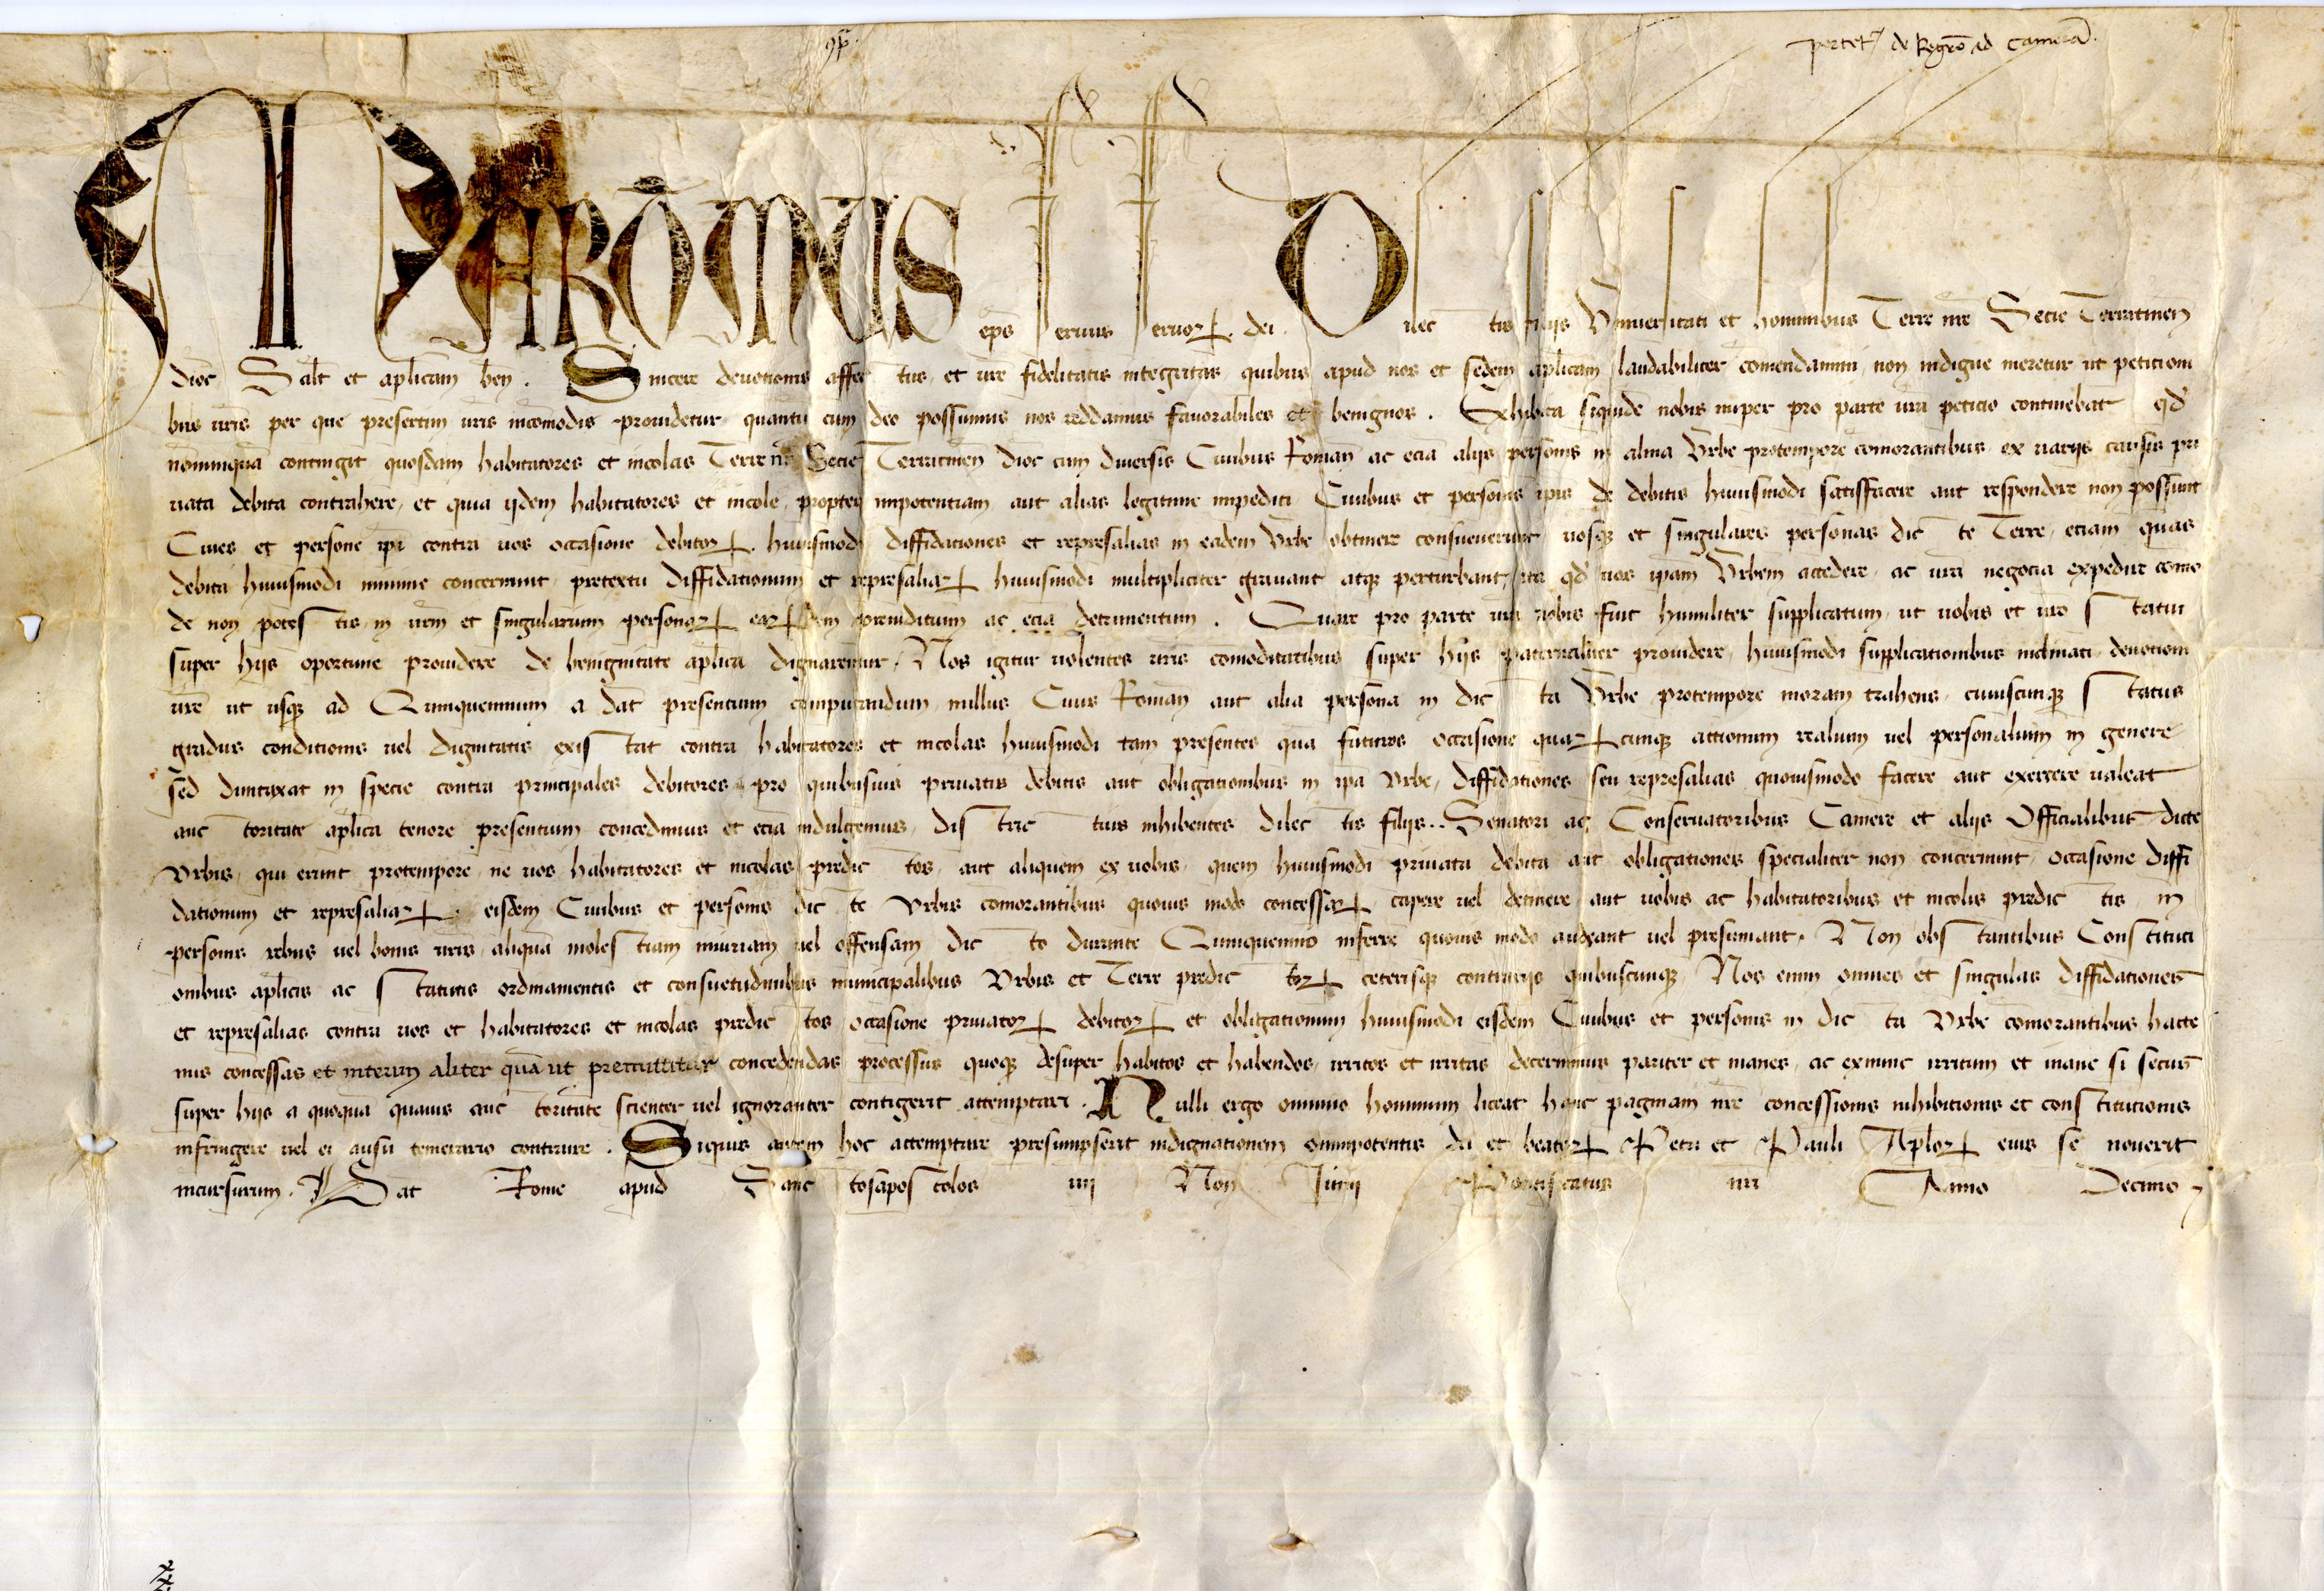 ꝯp̃.
portet~ de Regr̃o ad Camerã.
MARTINUS ep̃s servus servoꝝ. dei. Dilec tis filijs Universitati et hominibus Terre nr̃e Setie Terracineñ
dioc̃ Salt̃ et aplicam beñ. Sincere devotionis affec tus, et vr̃e fidelitatis integritas, quibus apud nos et sedem aplicam laudabiliter com̃endamini, non indigne meretur ut petitioni
bus vr̃is per que presertim vr̃is incõmodis providetur, quantũ cum deo possumus nos reddamus favorabiles et benignos. Exhibita siquidẽ nobis nuper pro parte vr̃a peticio continebat qd̃
nonnunquã contingit quosdam habitatores et incolas Terre nr̃e Setie Terracineñ dioc̃ cum diversis Civibus Romañ ac eciã alijs personis in alma Urbe protempore com̃orantibus ex varijs causis pri
vata debita contrahere, et quia ijdem habitatores et incole, propter impotentiam aut alias legitime impediti Civibus et personis ip̃is de debitis huiusmodi satisfacere aut respondere non possunt
Cives et persone ip̃i contra vos occasione debitoꝝ. huiusmodi diffidationes et represalias in eadem Urbe obtinere consueverunt, vosqꝫ et singulares personas dic te Terre, eciam quas
debita huiusmodi minime concernunt, pretextu diffidationum et represaliaꝝ huiusmodi multipliciter gravant atqꝫ perturbant, ita qd̃ vos ip̃am Urbem accedere, ac vr̃a negocia expedire com̃o
de non potes tis, in vr̃m et singularum personaꝝ eaꝝdem preiuditium ac eciã detrimentum. Quare pro parte vr̃a nobis fuit humiliter supplicatum, ut vobis et vr̃o s tatui
super hijs oportune providere de benignitate aplica dignaremur, Nos igitur volentes vr̃is com̃oditatibus super hijs paternaliter providere, huiusmodi supplicationibus inclinati, devotioni
vr̃e ut usqꝫ ad Quinquennium a dat̃ presentium computandum, nullus Civis Romañ aut alia persona in dic ta Urbe protempore moram trahens, cuiuscunqꝫ s tatus
gradus conditionis vel dignitatis exis tat contra habitatores et incolas huiusmodi tam presentes quã futuros occasione quaꝝcunqꝫ actionum realium vel personalium in genere
sed duntaxat in specie contra principales debitores pro quibusvis privatis debitis aut obligationibus in ip̃a Urbe, diffidationes seu represalias quovismodo facere aut exercere valeat
auc toritate aplica tenore presentium concedimus et eciã indulgemus, dis tric tius inhibentes dilec tis filijs.. Senatori ac Conservatoribus Camere et alijs Officialibus dicte
Urbis, qui erunt protempore, ne vos habitatores et incolas predic tos, aut aliquem ex vobis, quem huiusmodi privata debita aut obligationes specialiter non concernunt, occasione diffi
dationum et represaliaꝝ. eisdem Civibus et personis dic te Urbis com̃orantibus quovis modo concessaꝝ capere vel detinere aut vobis ac habitatoribus et incolis predic tis in
personis rebus vel bonis vr̃is, aliquã moles tiam iniuriam vel offensam dic to durante Quinquennio inferre quovis modo audeant vel presumant. Non obs tantibus Constituti
onibus aplicis ac s tatutis ordinamentis et consuetudinibus municipalibus Urbis et Terre predic taꝝ ceterisqꝫ contrarijs quibuscunqꝫ, Nos enim omnes et singulas diffidationes
et represalias contra vos et habitatores et incolas predic tos occasione privatoꝝ debitoꝝ et obligationum huiusmodi eisdem Civibus et personis in dic ta Urbe com̃orantibus hacte
nus concessas et interim aliter quã ut premittitur concedendas processus quoqꝫ desuper habitos et habendos, irritos et irritas decernimus pariter et inanes, ac exnunc irritum et inane si secus
super hijs a quoquã quavis auc toritate scienter vel ignoranter contigerit attemptari. Nulli ergo omnino hominum liceat hanc paginam nr̃e concessionis inhibitionis et cons titutionis
infringere vel ei ausu temerario contraire. Siquis autem hoc attemptare presumpserit indignationem omnipotentis dei et beatoꝝ Petri et Pauli Aploꝝ eius se noverit
incursurum. Dat̃ Rome apud Sanc tosapos tolos iiij Noñ Junij Pontificatus nr̃i Anno Decimo